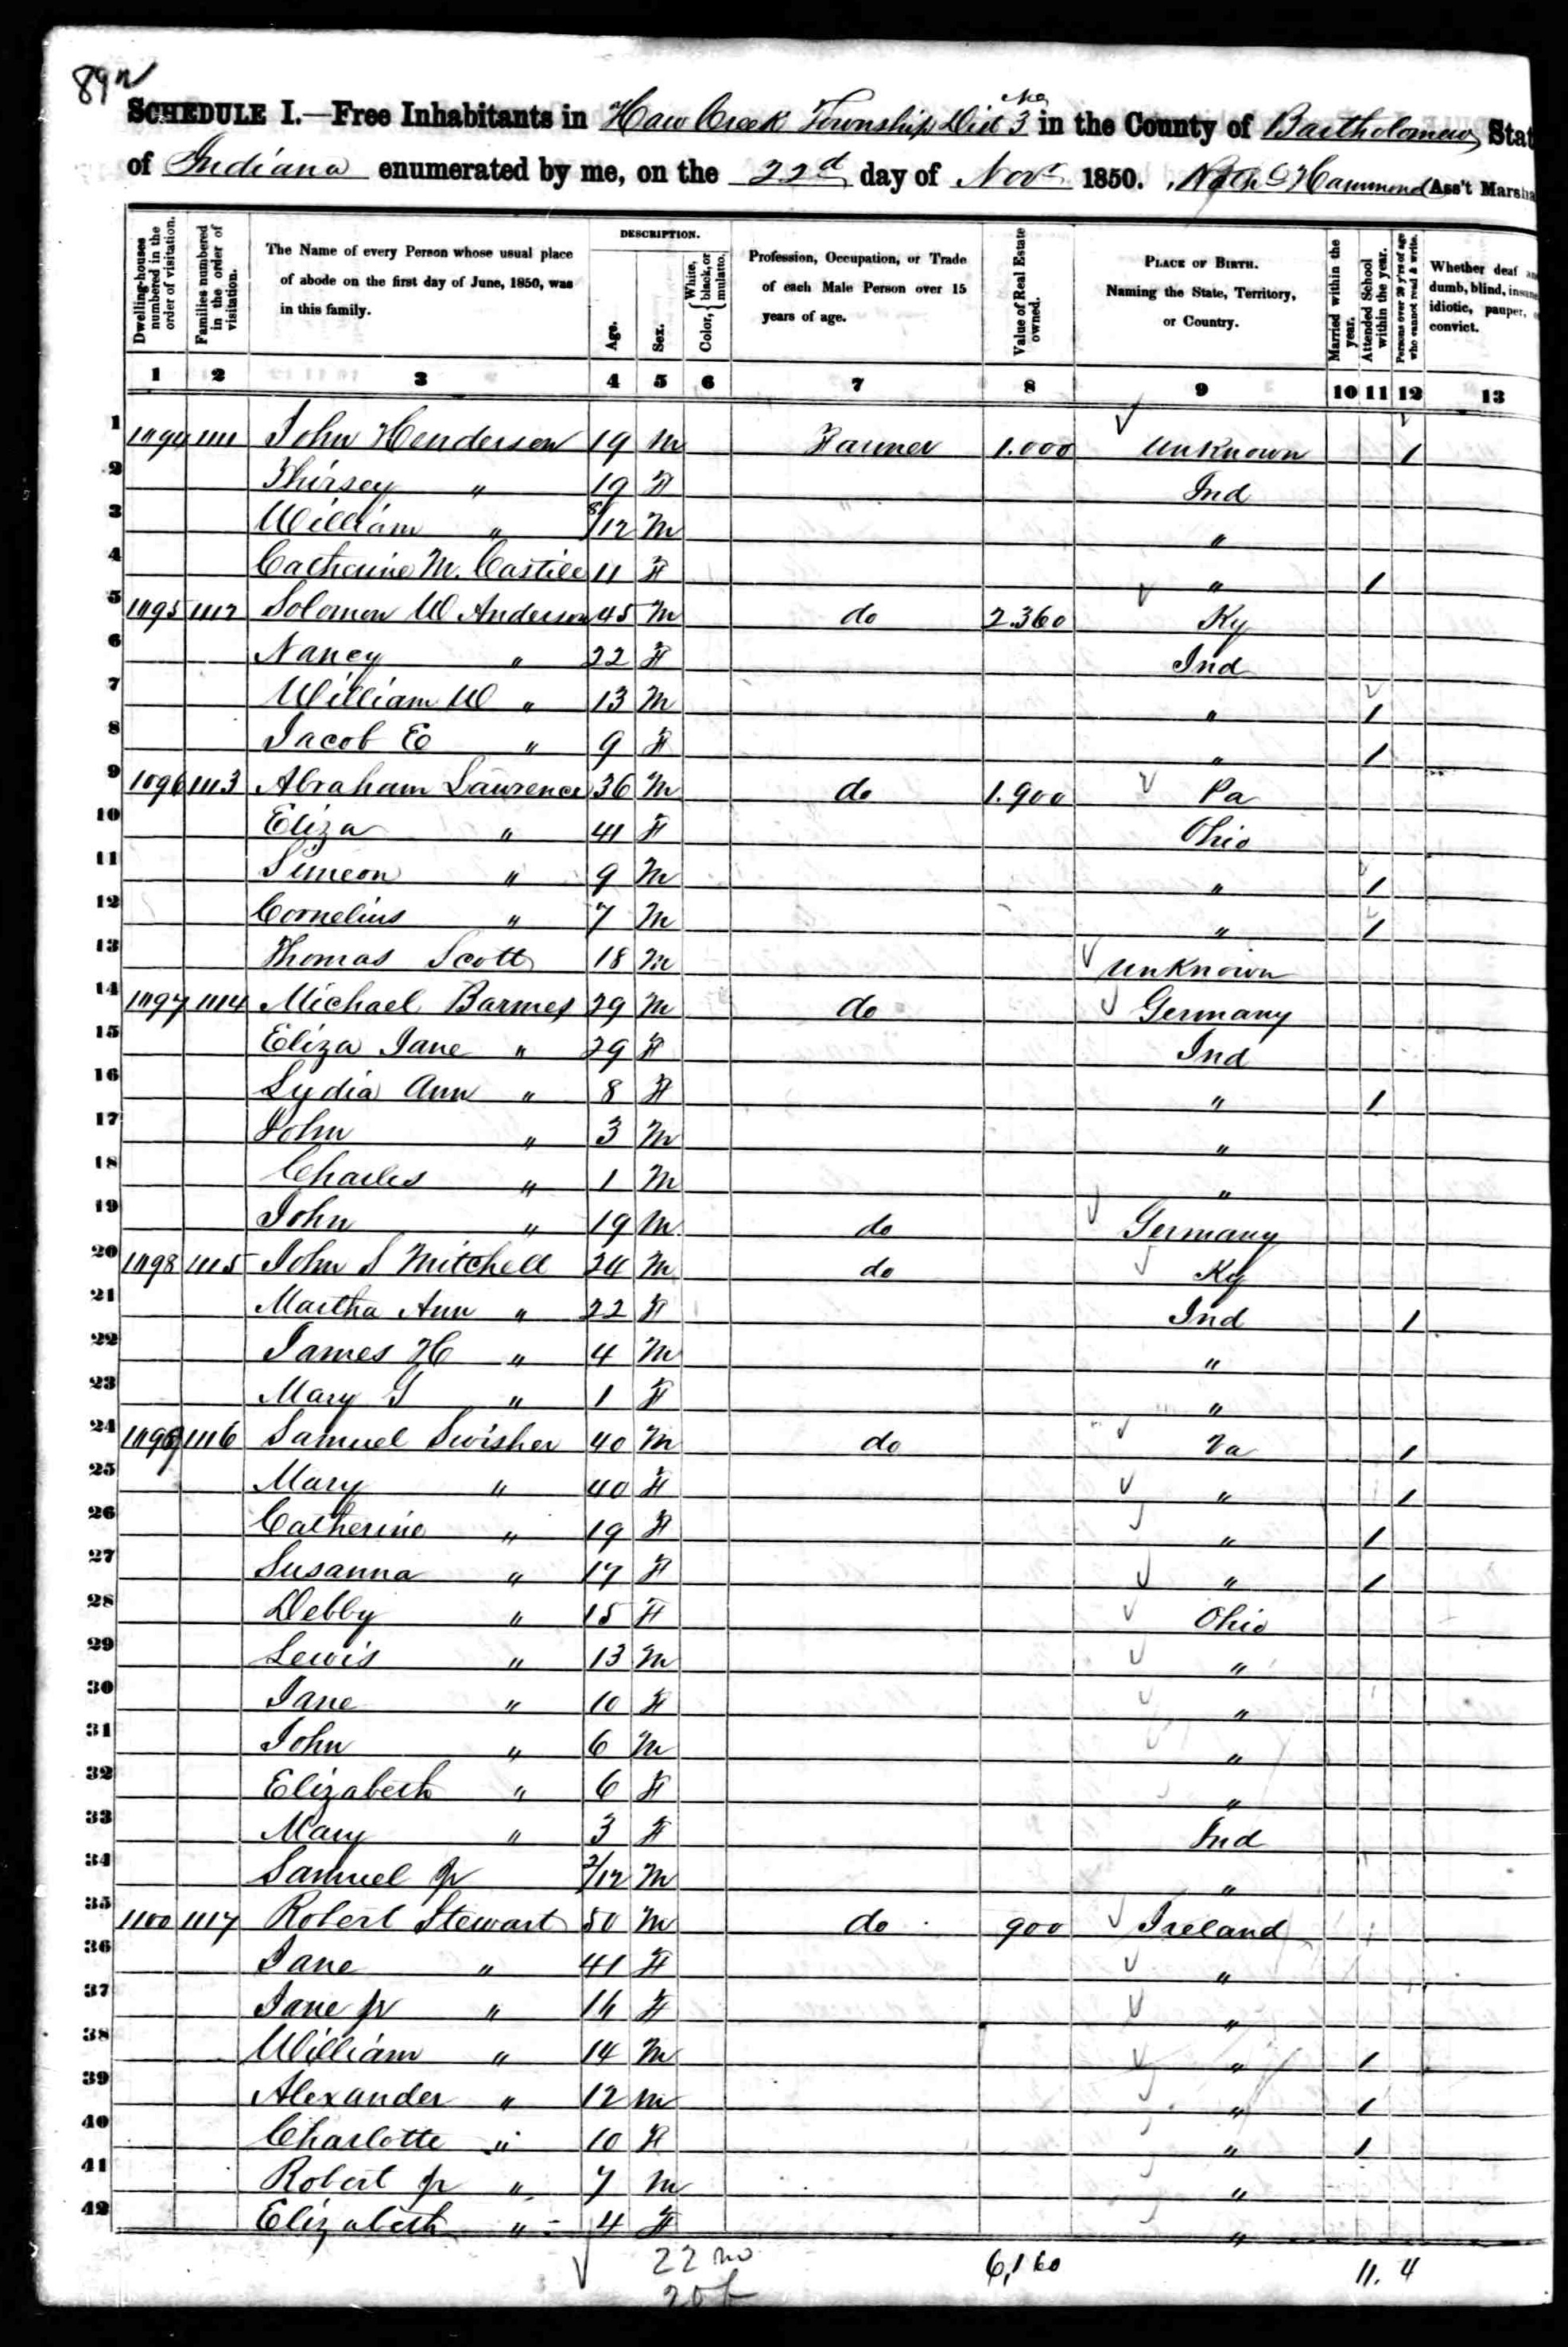 89 1/2
SCHEDULE I.—Free Inhabitants in Haw Creek Township Dist No 3 in the County of Bartholomew Stat
of Indiana enumerated by me, on the 22d day of Novr 1850. Hammond Ass't Marsha
DESCRIPTION.
Dwelling-houses numbered in the order of visitation.
Families numbered in the order of visitation.
The Name of every Person whose usual place of abode on the first day of June, 1850, was in this family.
Age.
Sex.
Color, { White, black, or mulatto.
Profession, Occupation, or Trade of each Male Person over 15 years of age.
Value of Real Estate owned.
PLACE OF BIRTH. Naming the State, Territory, or Country.
Married within the year.
Attended School within the year.
Persons over 20 y'rs of age who cannot read & write.
Whether deaf an dumb, blind, insane idiotic, pauper, o convict.
1 2 3 4 5 6 7 8 9 10 11 12 13
1 1094 1111 John Henderson 19 M Farmer 1.000 unknown 1
2 Thirsey " 19 F Ind
3 William " 8/12 M "
4 Catherine M. Castile 11 F " 1
5 1095 1112 Solomon W Anderson 45 M do 2.360 Ky
6 Nancy " 22 F Ind
7 William W " 13 M " 1
8 Jacob E " 9 F " 1
9 1096 1113 Abraham Lawrence 36 M do 1.900 Pa
10 Eliza " 41 F Ohio
11 Simeon " 9 M " 1
12 Cornelius " 7 M " 1
13 Thomas Scott 18 M unknown
14 1097 1114 Michael Barmes 29 M do Germany
15 Eliza Jane " 29 F Ind
16 Lydia Ann " 8 F " 1
17 John " 3 M "
18 Charles " 1 M "
19 John " 19 M do Germany
20 1098 1115 John S Mitchell 24 M do Ky
21 Martha Ann " 22 F Ind 1
22 James H " 4 M "
23 Mary " 1 F "
24 1099 1116 Samuel Swisher 40 M do Va 1
25 Mary " 40 F " 1
26 Catherine " 19 F " 1
27 Susanna " 17 F " 1
28 Debby " 15 F Ohio
29 Lewis " 13 M "
30 Jane " 10 F "
31 John " 6 M "
32 Elizabeth " 6 F "
33 Mary " 3 F Ind
34 Samuel Jr 2/12 M "
35 1100 1117 Robert Stewart 50 M do 900 Ireland
36 Jane " 41 F "
37 Jane Jr " 16 F "
38 William " 14 M " 1
39 Alexander " 12 M " 1
40 Charlotte " 10 F " 1
41 Robert Jr " 7 M "
42 Elizabeth " 4 F "
22 m 6,160 11. 4
20 f